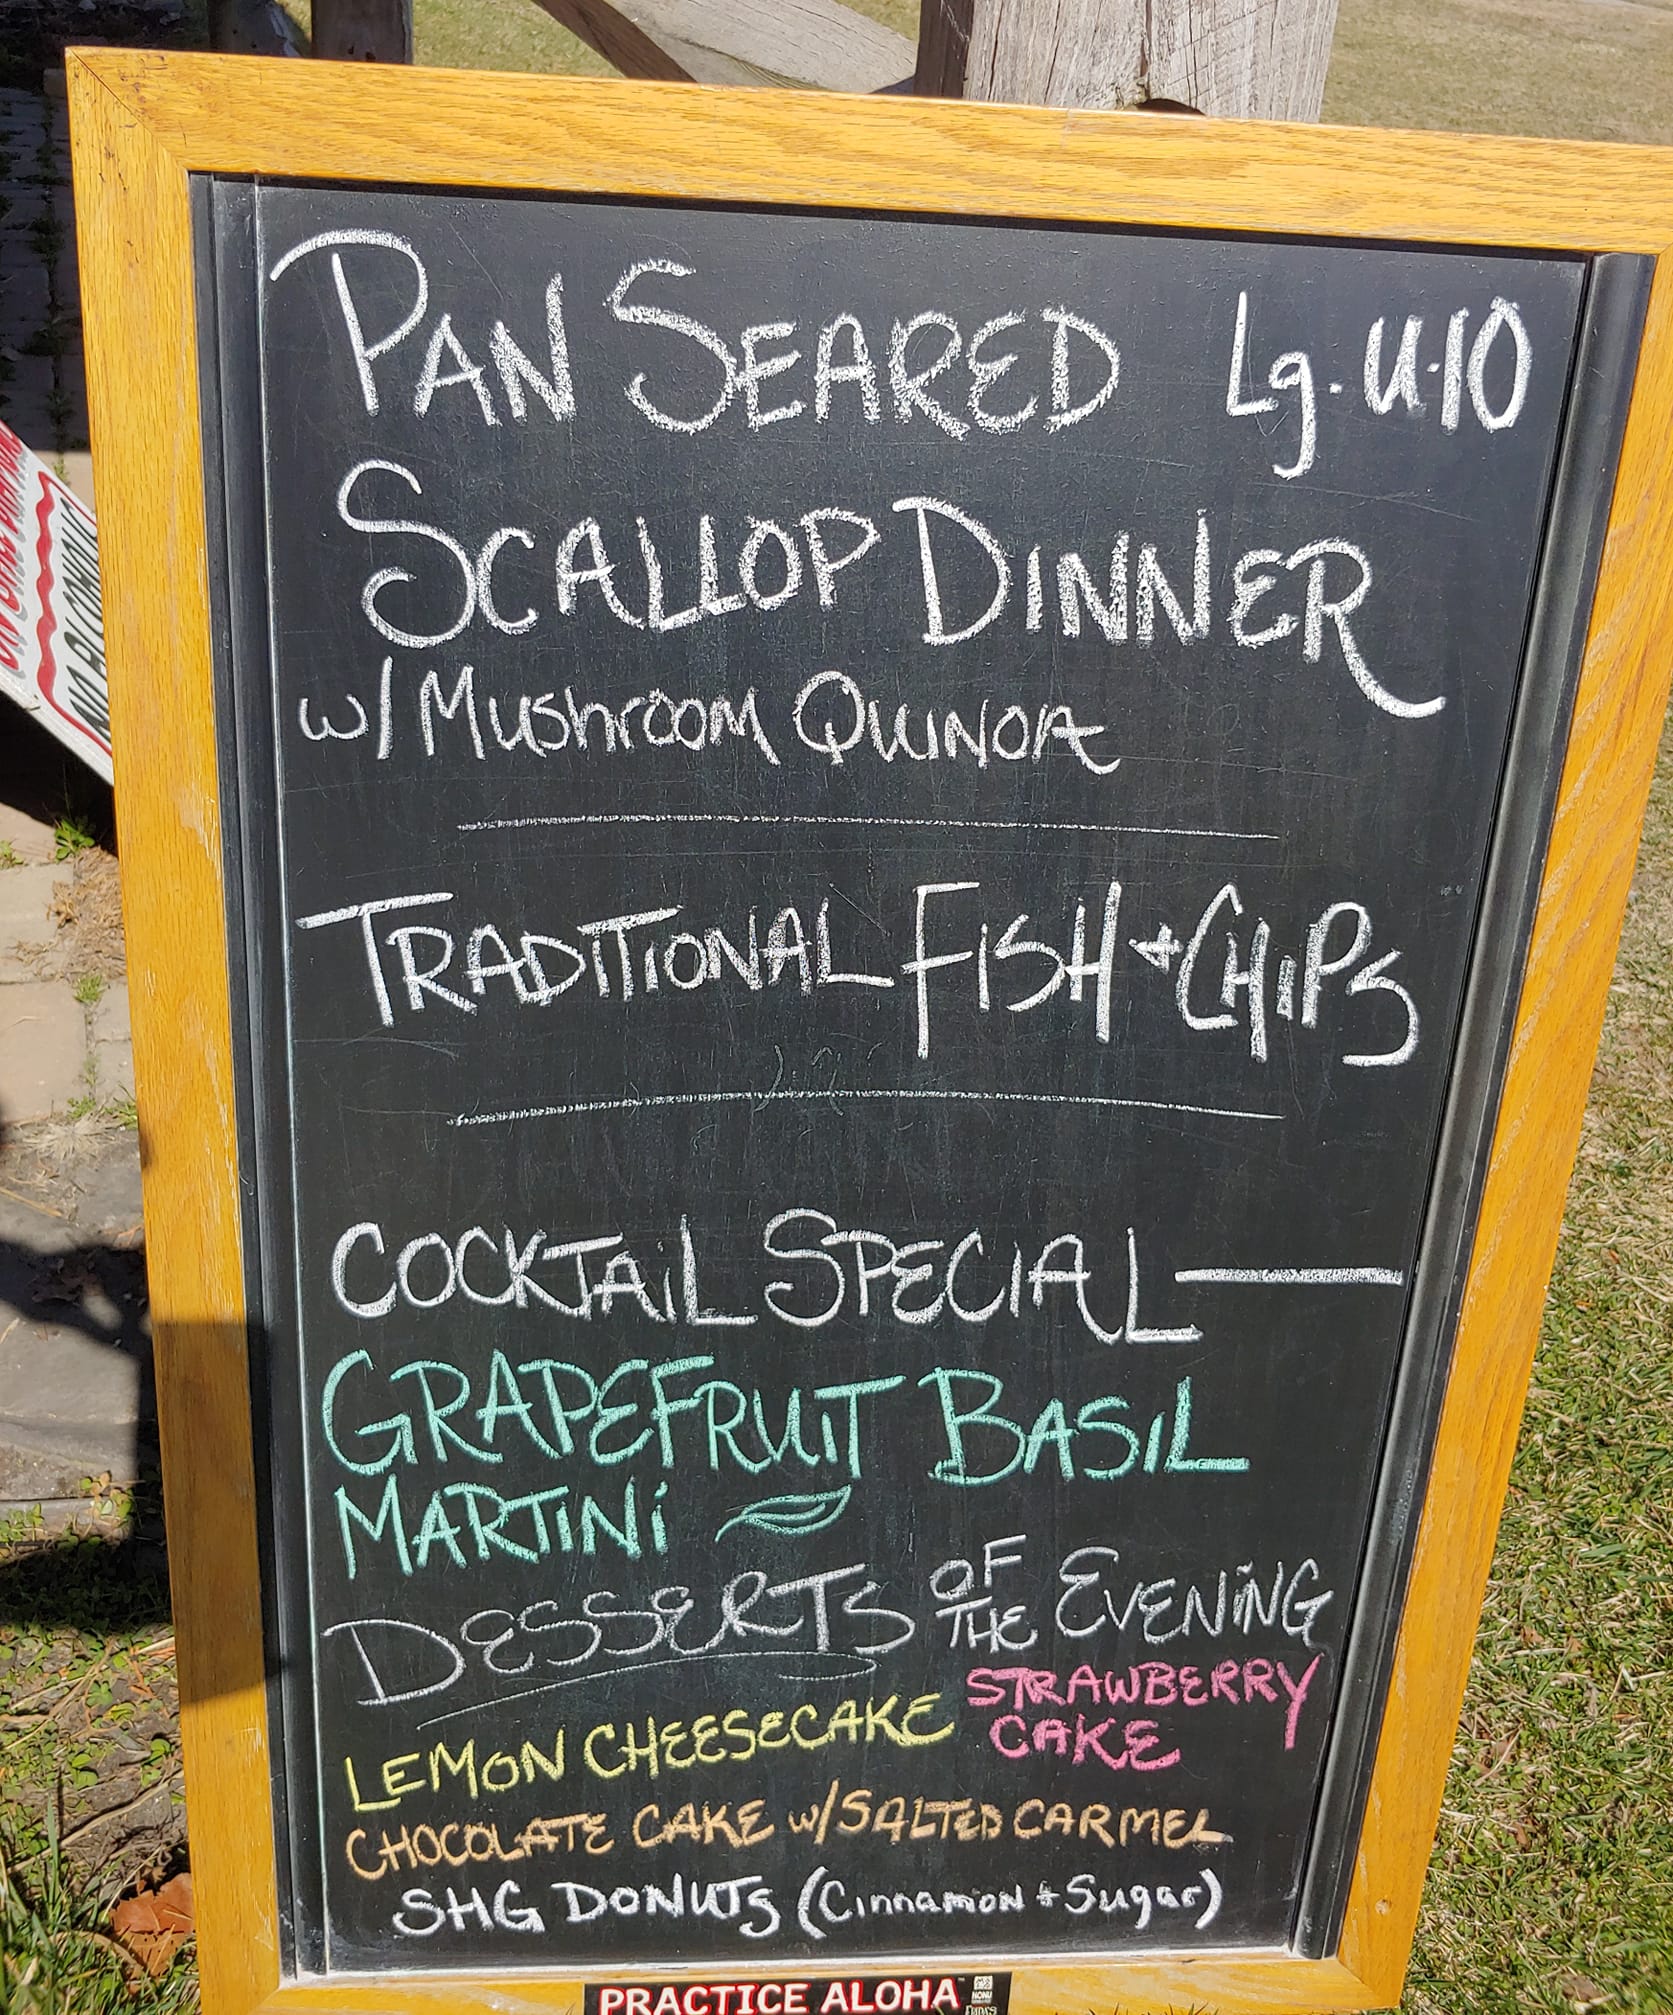 PAN SEARED Lg. U-10
SCALLOP DINNER
w/ MUSHROOM QUINOA
TRADITIONAL FISH + CHIPS
COCKTAIL SPECIAL
GRAPEFRUIT BASIL
MARTINI
DESSERTS OF THE EVENING
LEMON CHEESECAKE STRAWBERRY
CAKE
CHOCOLATE CAKE w/ SALTED CARMEL
SHG DONUTS (CINNAMON + SUGAR)
PRACTICE ALOHA